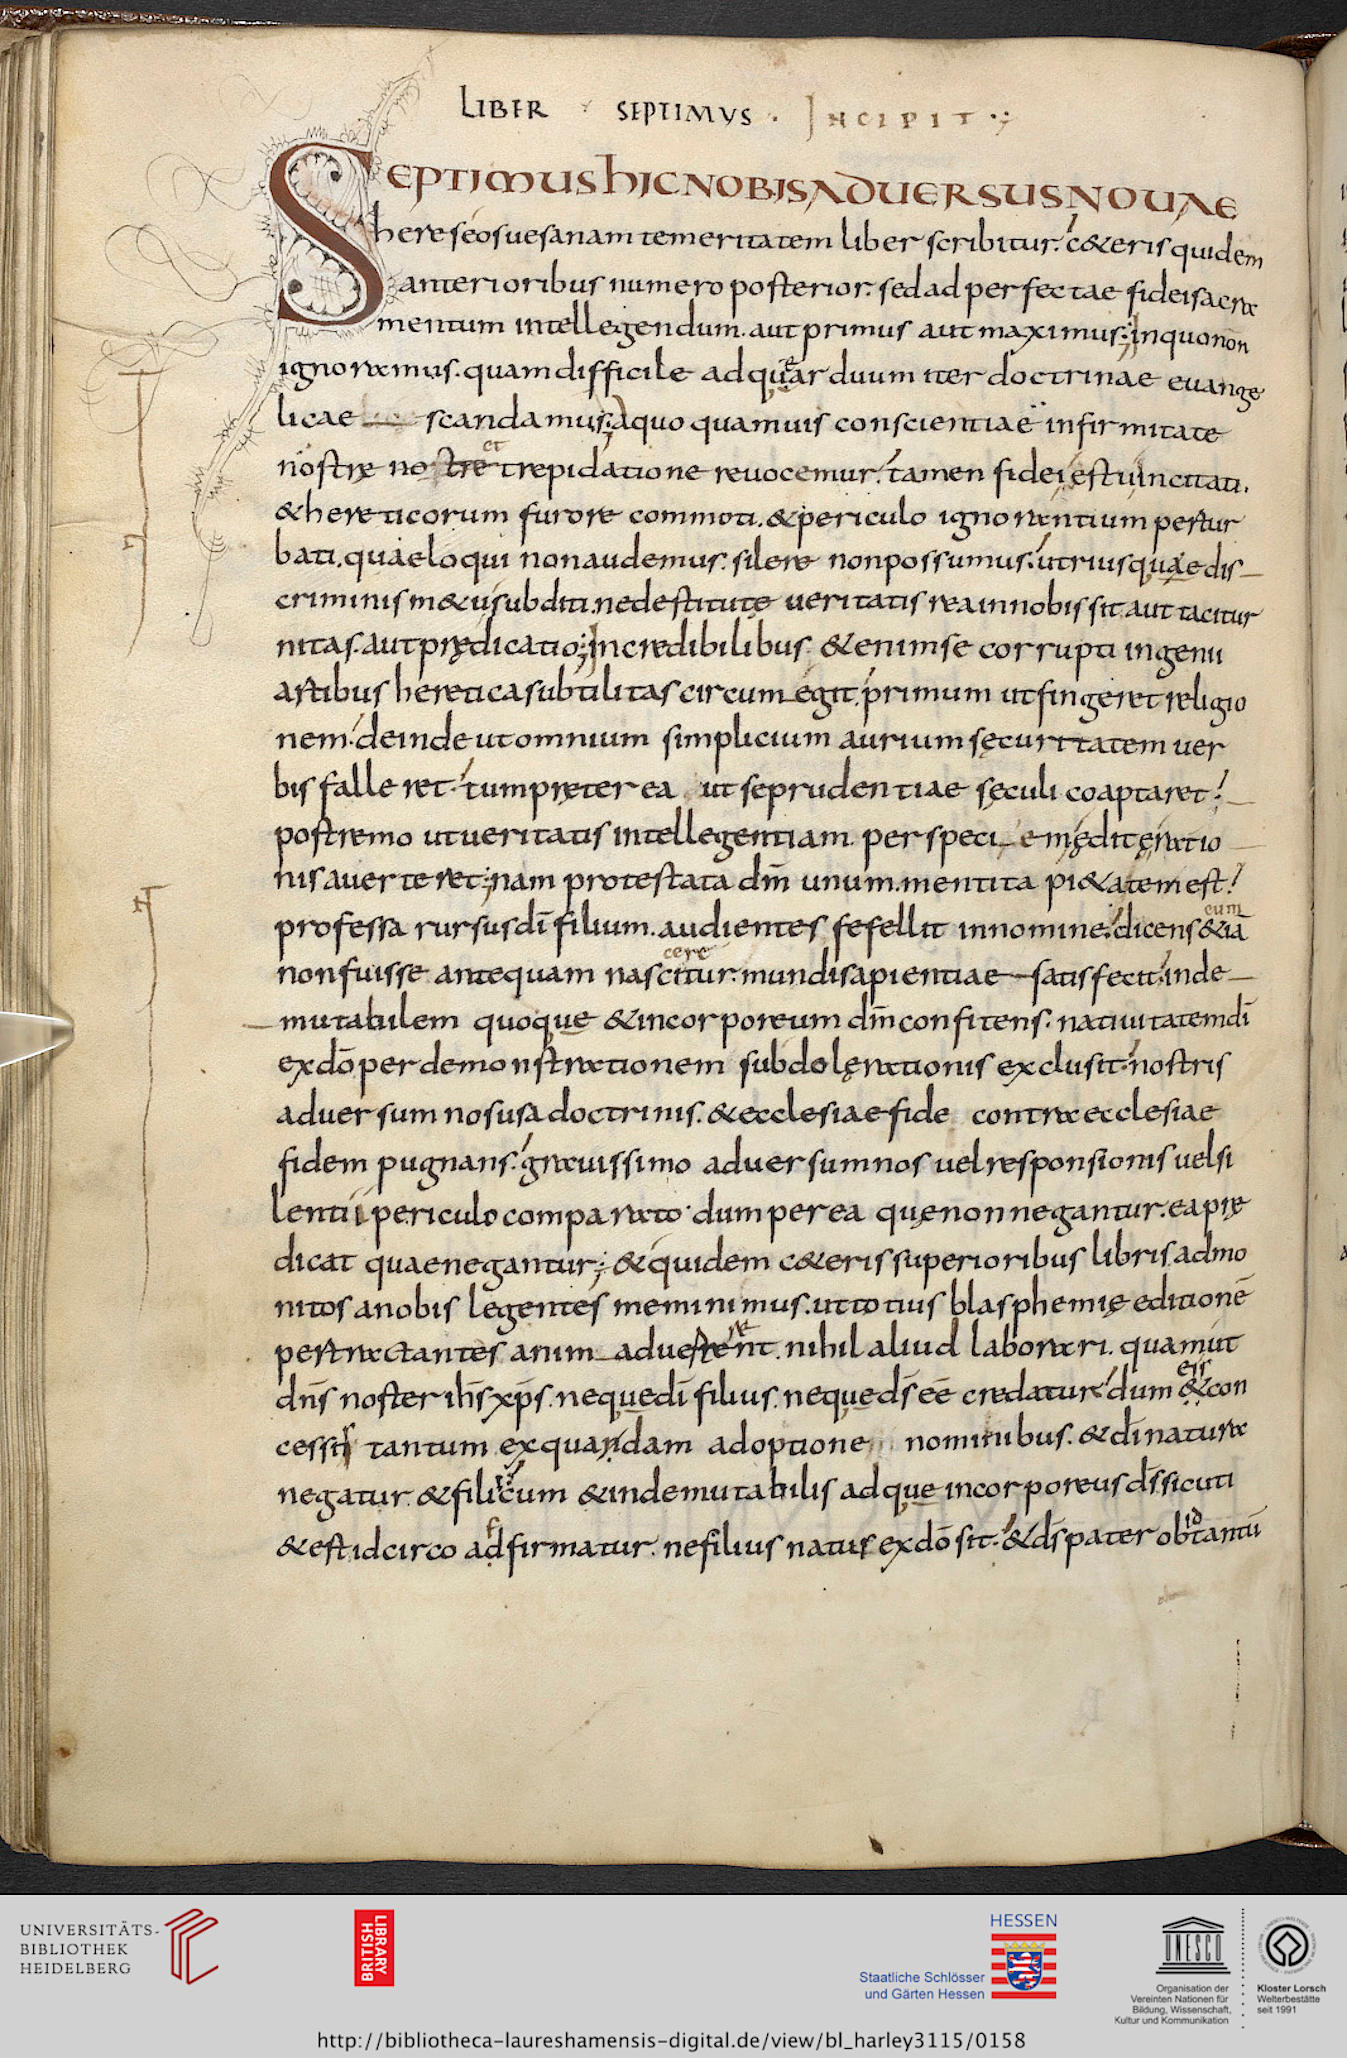 LIBER SEPTIMVS · INCIPIT ·
SEPTIMUS HIC NOBIS ADUERSUS NOUAE
hereseos uesanam temeritatem liber scribitur. c&eris quidem
anterioribus numero posterior. sed ad perfectae fidei sacra
mentum intellegendum. aut primus aut maximus; in quo non
ignoramus. quam difficile adquae arduum iter doctrinae euange
licae scandamus; a quo quamuis conscientiae infirmitate
nostrę nostre et trepidatione reuocemur. tamen fidei estu incitati.
& hereticorum furore commoti. & periculo ignorantium pertur
bati. quae loqui non audemus. silere non possumus. utriusquae dis
criminis m&u subditi. ne destitutę ueritatis rea in nobis sit aut tacitur
nitas. aut prędicatio; incredibilibus &enim se corrupti ingenii
artibus heretica subtilitas circum egit. primum ut fingeret religio
nem. deinde ut omnium simplicium aurium sęcuritatem uer
bis falleret. tum pręterea ut se prudentiae sęculi coaptaret.
postremo ut ueritatis intellegentiam per speci e mędite ratio
nis auerteret; nam protestata dm̄ unum. mentita pi&atem est.
professa rursus dī filium. audientes fefellit in nomine. dicens &iā cum
non fuisse antequam nascitur cere. mundi sapientiae satisfecit. inde
mutabilem quoque & incorporeum dm̄ confitens. natiuitatem dī
ex dō per demonstrationem subdolę rationis exclusit. nostris
aduersum nos usa doctrinis. & ecclesiae fide contra ecclesiae
fidem pugnans. grauissimo aduersum nos uel responsionis uel si
lentii periculo comparato. dum per ea quę non negantur. ea prę
dicat quae negantur; & quidem c&eris superioribus libris admo
nitos a nobis legentes meminimus. ut totius blasphemię editionē
pertractantes anim aduerterent. nihil aliud laborari. quam ut
dn̄s noster ih̄s xp̄s. neque dī filius. neque ds̄ eē credatur. dum & eis con
cessis tantum ex quadam adoptione nominibus. & dī natura
negatur. & filii cum & indemutabilis adque incorporeus ds̄ sicuti
& est idcirco adfirmatur. ne filius natus ex dō sit. & ds̄ pater ob id tantū
UNIVERSITÄTS-
BIBLIOTHEK
HEIDELBERG
BRITISH
LIBRARY
HESSEN
Staatliche Schlösser
und Gärten Hessen
UNESCO
Organisation der
Vereinten Nationen für
Bildung, Wissenschaft,
Kultur und Kommunikation
Kloster Lorsch
Welterbestätte
seit 1991
http://bibliotheca-laureshamensis-digital.de/view/bl_harley3115/0158